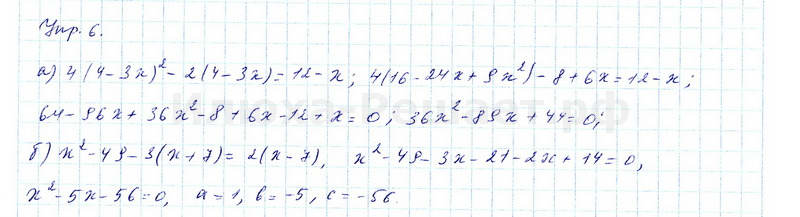 Упр. 6.
а) 4(4-3x)² - 2(4-3x) = 12 - x; 4(16 - 24x + 9x²) - 8 + 6x = 12 - x;
64 - 96x + 36x² - 8 + 6x - 12 + x = 0; 36x² - 89x + 44 = 0;
б) x² - 49 - 3(x+7) = 2(x-7), x² - 49 - 3x - 21 - 2x + 14 = 0,
x² - 5x - 56 = 0, a = 1, b = -5, c = -56.